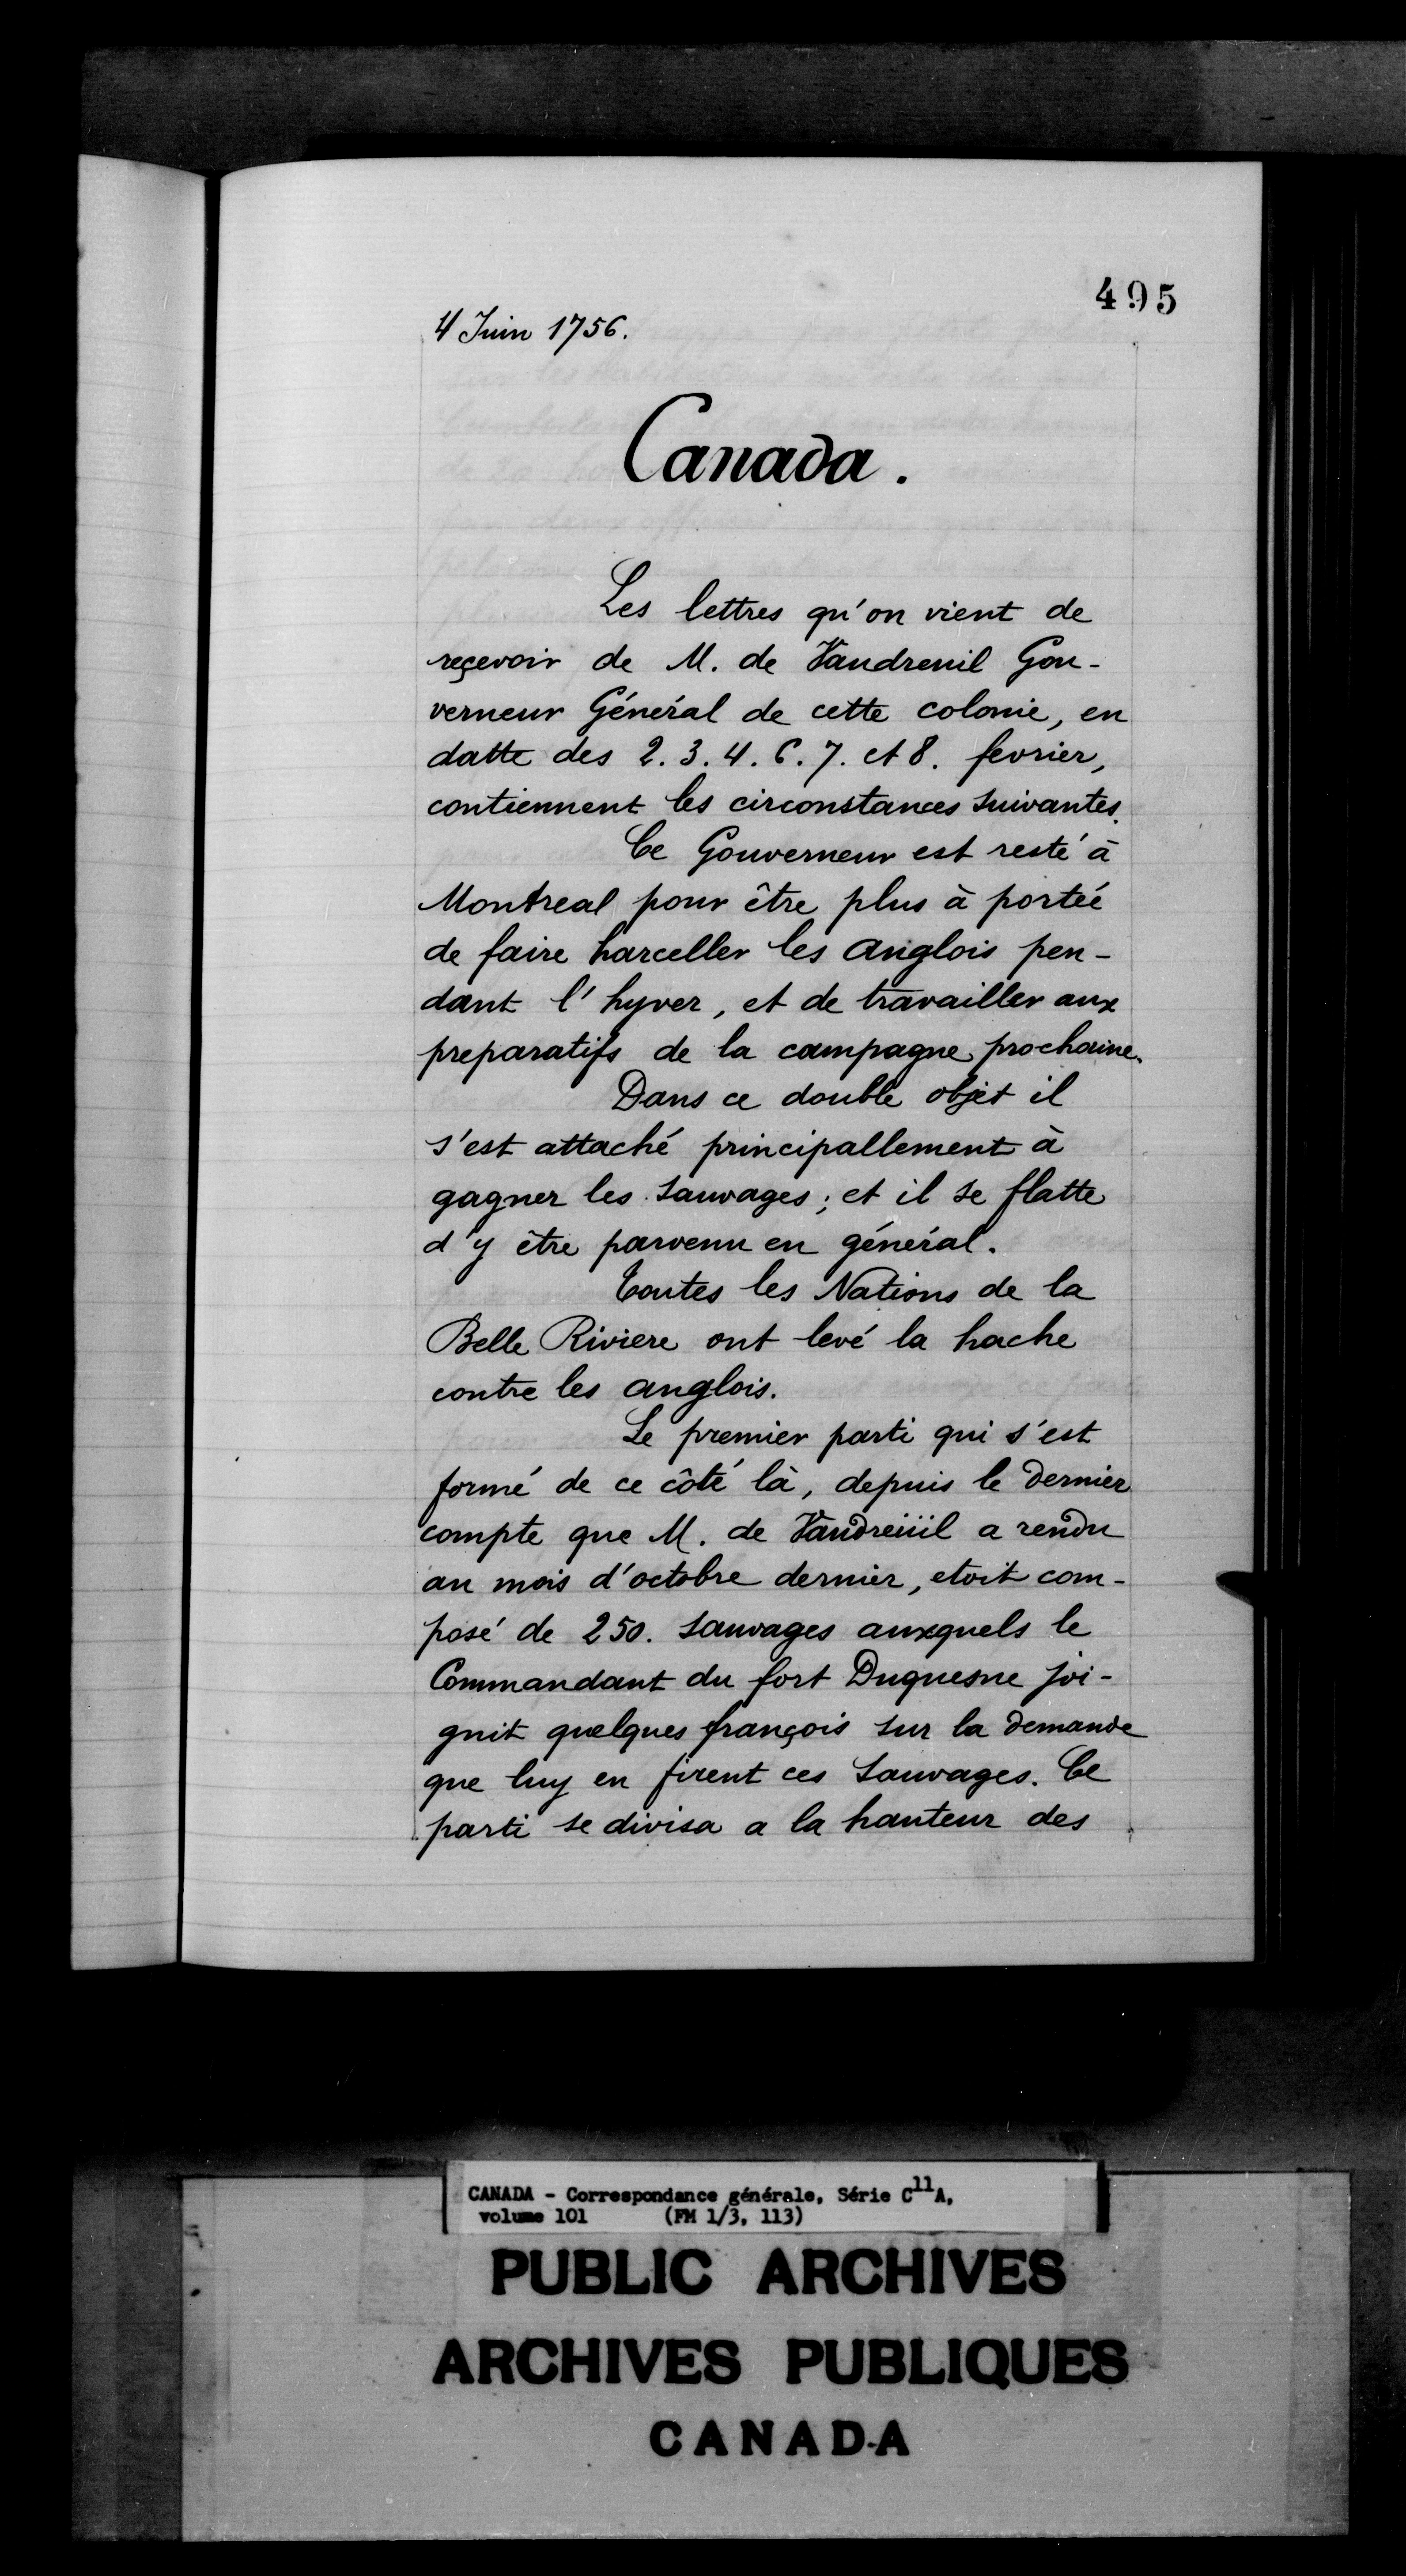 495
4 Juin 1756.
Canada.
Les lettres qu'on vient de
reçevoir de M. de Vaudreuil Gou-
verneur Général de cette colonie, en
datte des 2. 3. 4. 6. 7. et 8. fevrier,
contiennent les circonstances suivantes.
Ce Gouverneur est resté à
Montreal pour être plus à portée
de faire harceller les anglois pen-
dant l'hyver, et de travailler aux
preparatifs de la campagne prochaine.
Dans ce double objet il
s'est attaché principallement à
gagner les sauvages; et il se flatte
d'y être parvenu en général.
Toutes les Nations de la
Belle Riviere ont levé la hache
contre les anglois.
Le premier parti qui s'est
formé de ce côté là, depuis le dernier
compte que M. de Vaudreüil a rendu
au mois d'octobre dernier, etoit com-
posé de 250. sauvages auxquels le
Commandant du fort Duquesne joi-
gnit quelques françois sur la demande
que luy en firent ces sauvages. Ce
parti se divisa a la hauteur des
CANADA - Correspondance générale, Série C11A,
volume 101 (FM 1/3, 113)
PUBLIC ARCHIVES
ARCHIVES PUBLIQUES
CANADA